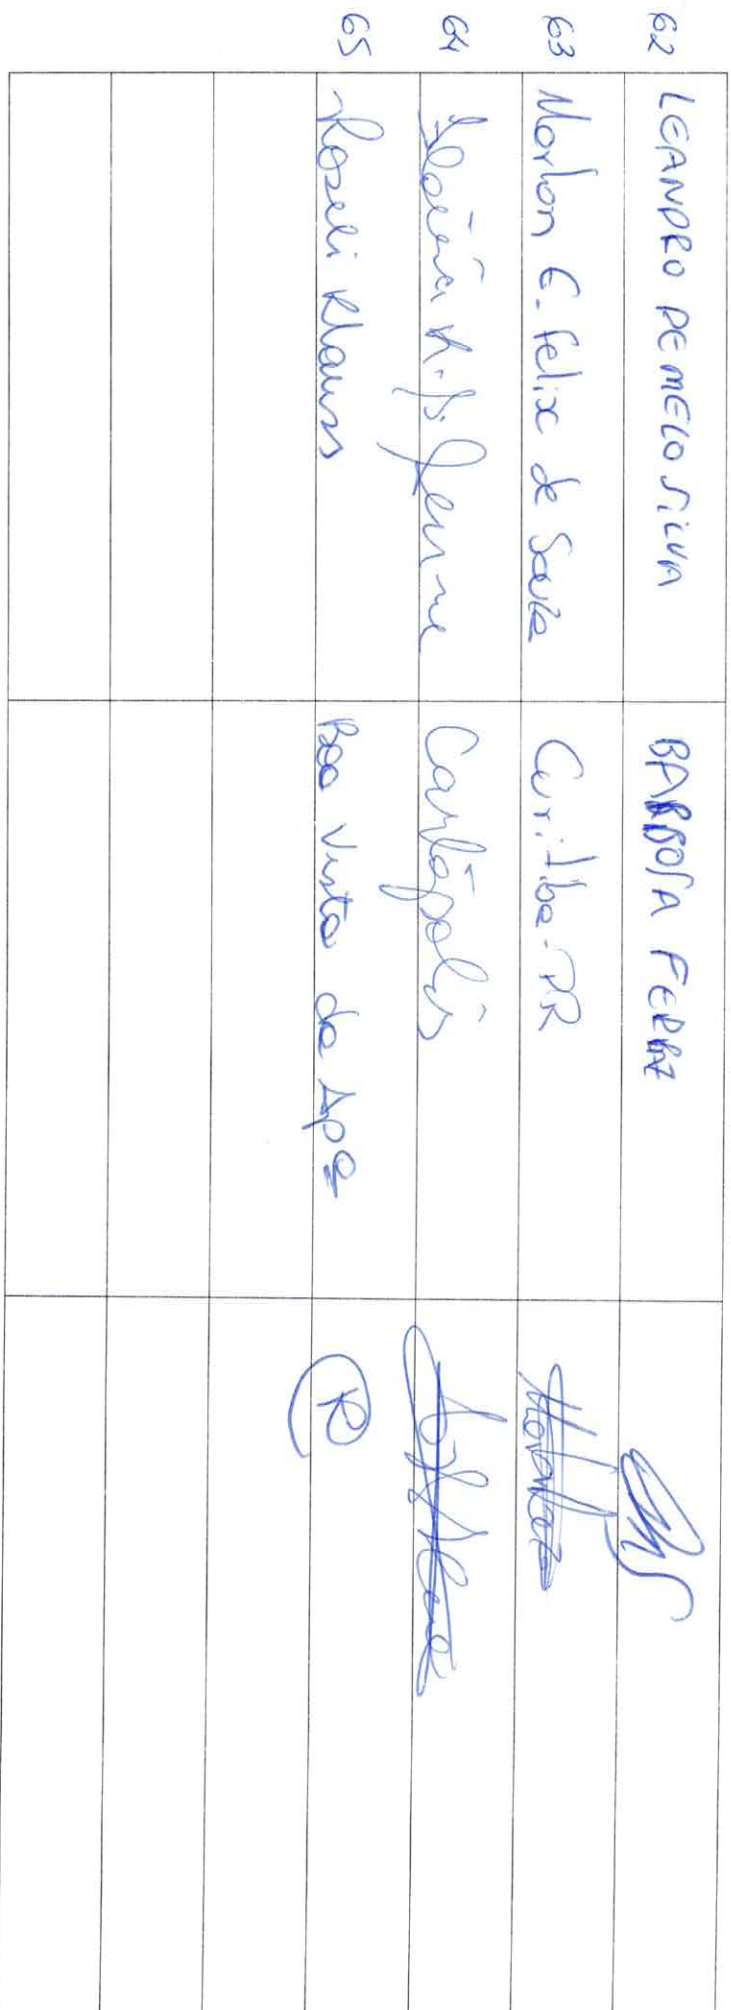 62 LEANDRO DE MELO SILVA BARBOSA FERRAZ
63 Marlon E. Felix de Souza Curitiba-PR
64 K. Carlópolis
65 Roseli Klauss Boa Vista da Apa